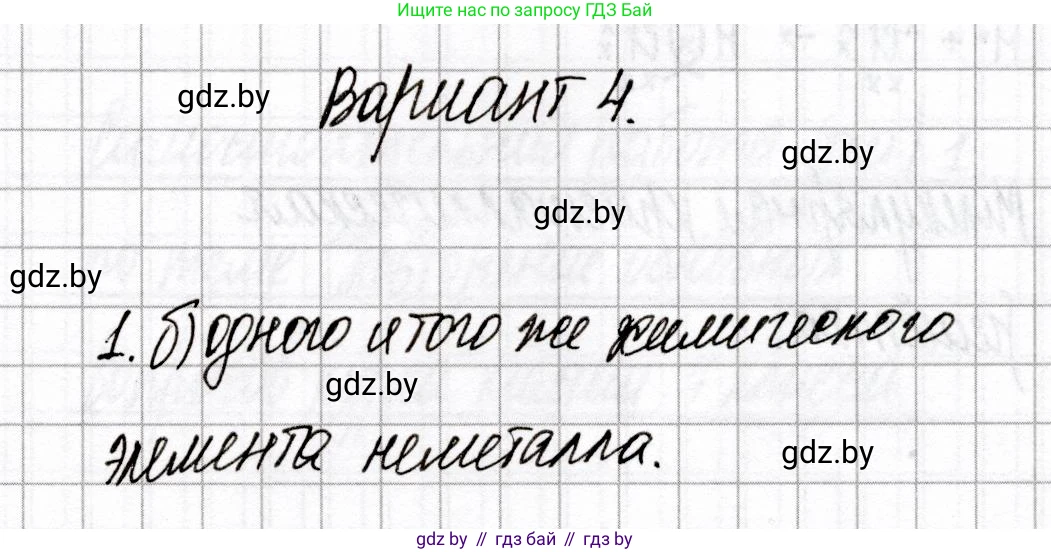 Ищите нас по запросу ГДЗ Бай
gdz.by
Вариант 4.
gdz.by
gdz.by
gdz.by
1. б) одного и того же химического
gdz.by
элемента неметалла.
gdz.by
gdz.by // гдз бай // гдз by